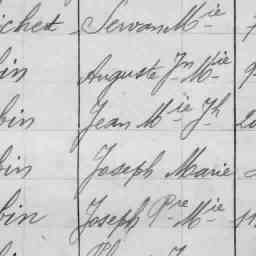 ichet Servan Mie
bin Auguste Jn Mie
bin Jean Mie Jh
bin Joseph Marie
bin Joseph Pre Mie